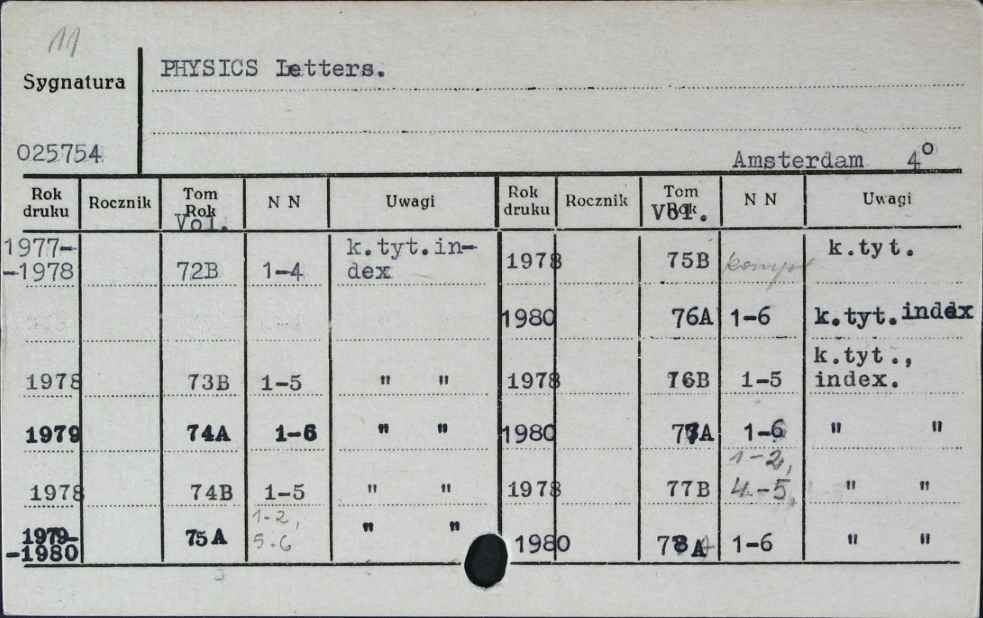 11
PHYSICS Letters.
Sygnatura
025754
Amsterdam 4°
Rok druku Rocznik Tom Rok Vol. N N Uwagi Rok druku Rocznik Tom Rok Vol. N N Uwagi
1977-
-1978 72B 1-4 k.tyt.in-
dex
1978 73B 1-5 " "
1979 74A 1-6 " "
1978 74B 1-5 " "
1979-
-1980 75A 1-2,
5-6 " "
1978 75B k.tyt.
1980 76A 1-6 k.tyt.index
1978 76B 1-5 k.tyt.,
index.
1980 77A 1-6 " "
1978 77B 1-2,
4-5, " "
1980 78A 1-6 " "